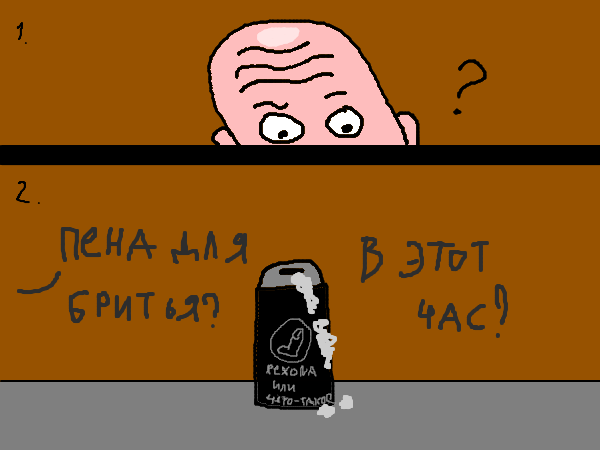 1.
?
2.
ПЕНА ДЛЯ
БРИТЬЯ?
В ЭТОТ
ЧАС?
РЕХОНА
ИЛИ
ЧЕГО-ТАКОЕ